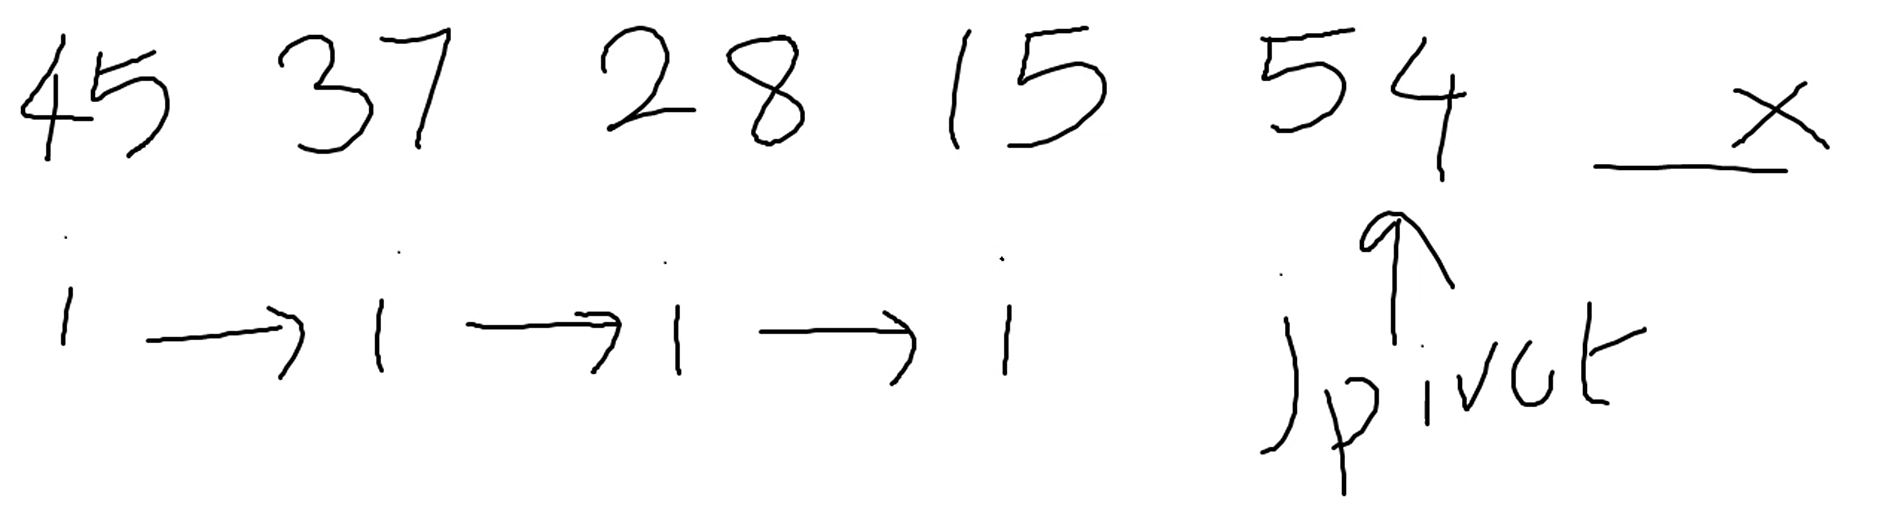 45 37 28 15 54 __ x
i → i → i → i j pivot